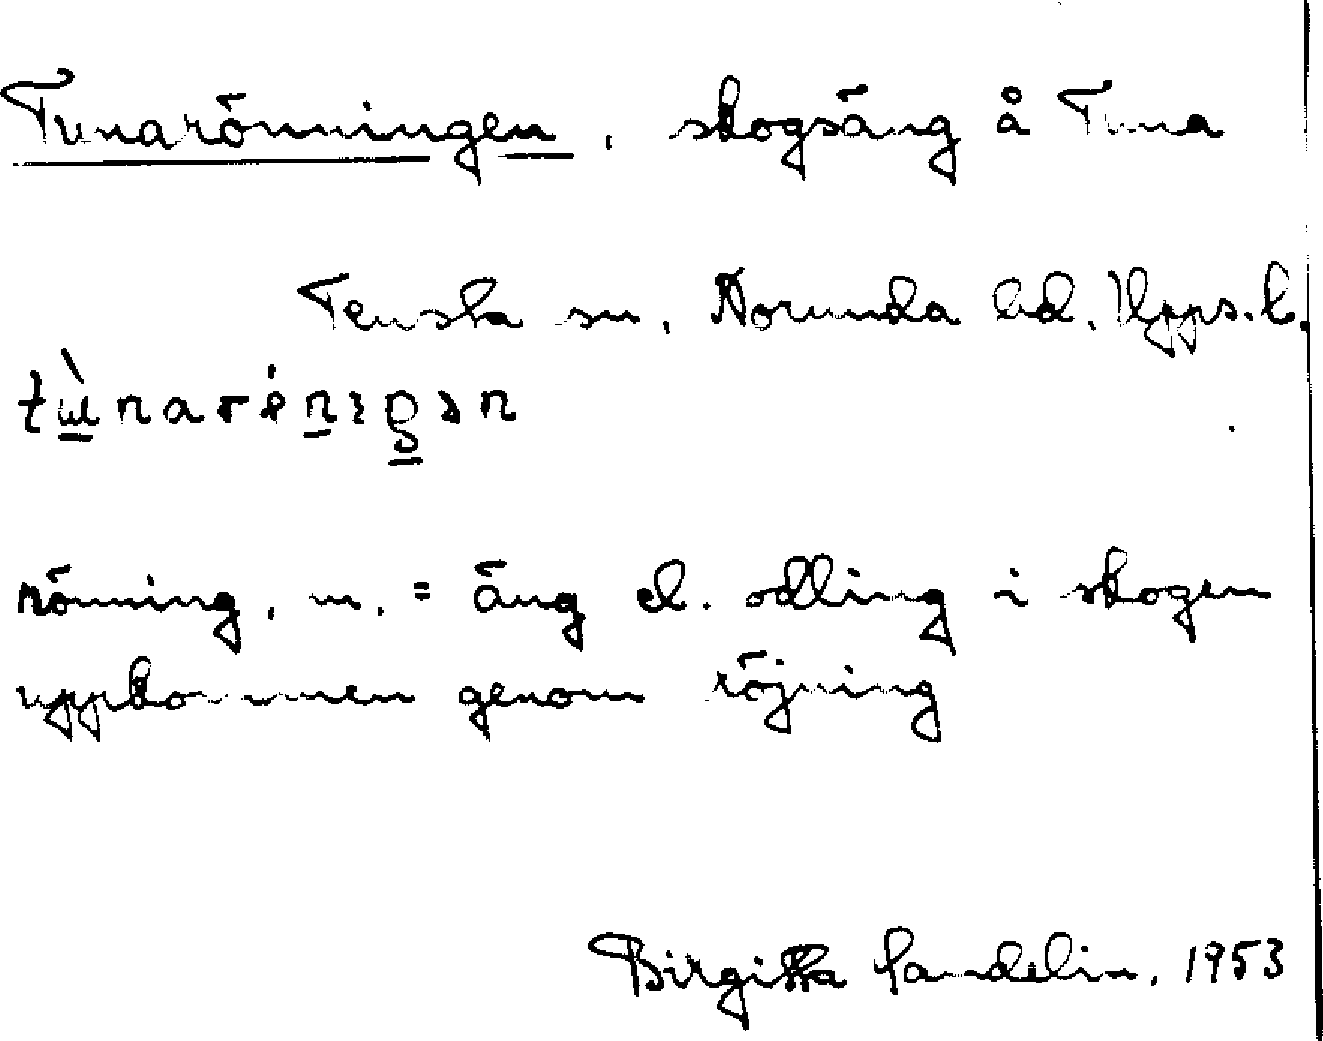 Tunarönningen, skogsäng å Tuna
Tenska sn, Norunda hd. Upps. l.
rönning, m. = äng el. odling i skogen
uppkommen genom röjning
Birgitta Sandelin, 1953